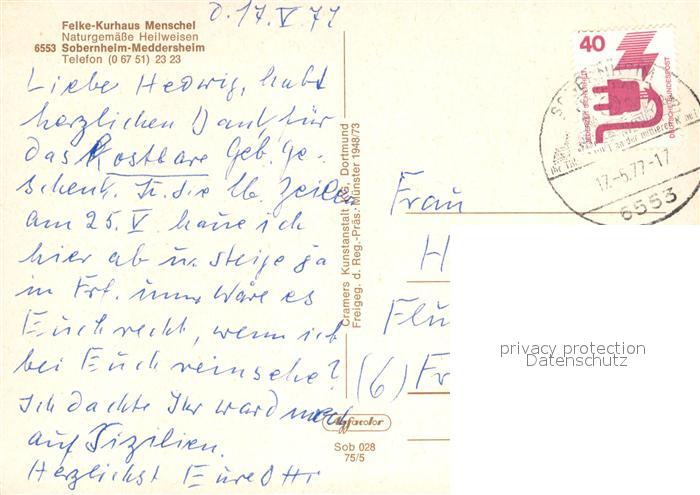 d. 17.V 77
Felke-Kurhaus Menschel
Naturgemäße Heilweisen
6553 Sobernheim-Meddersheim
Telefon (0 67 51) 23 23
Liebe Hedwig, habt
herzlichen Dank für
das Kostbare Geb. ge-
schenk u. die lb. Zeilen
am 25.V haue ich
hier ab u. steige ja
in Frf. um. Wäre es
Euch recht, wenn ich
bei Euch reinsehe?
Ich dachte Ihr ward noch
auf Sizilien.
Herzlichst Eure
Cramers Kunstanstalt KG. Dortmund
Freigeg. d. Reg.-Präs. Münster 1948/73
Agfacolor
Sob 028
75/5
40
DEUTSCHE BUNDESPOST
17.-5.77-17
6553
Frau
H
Flu
(6) Fr
privacy protection
Datenschutz